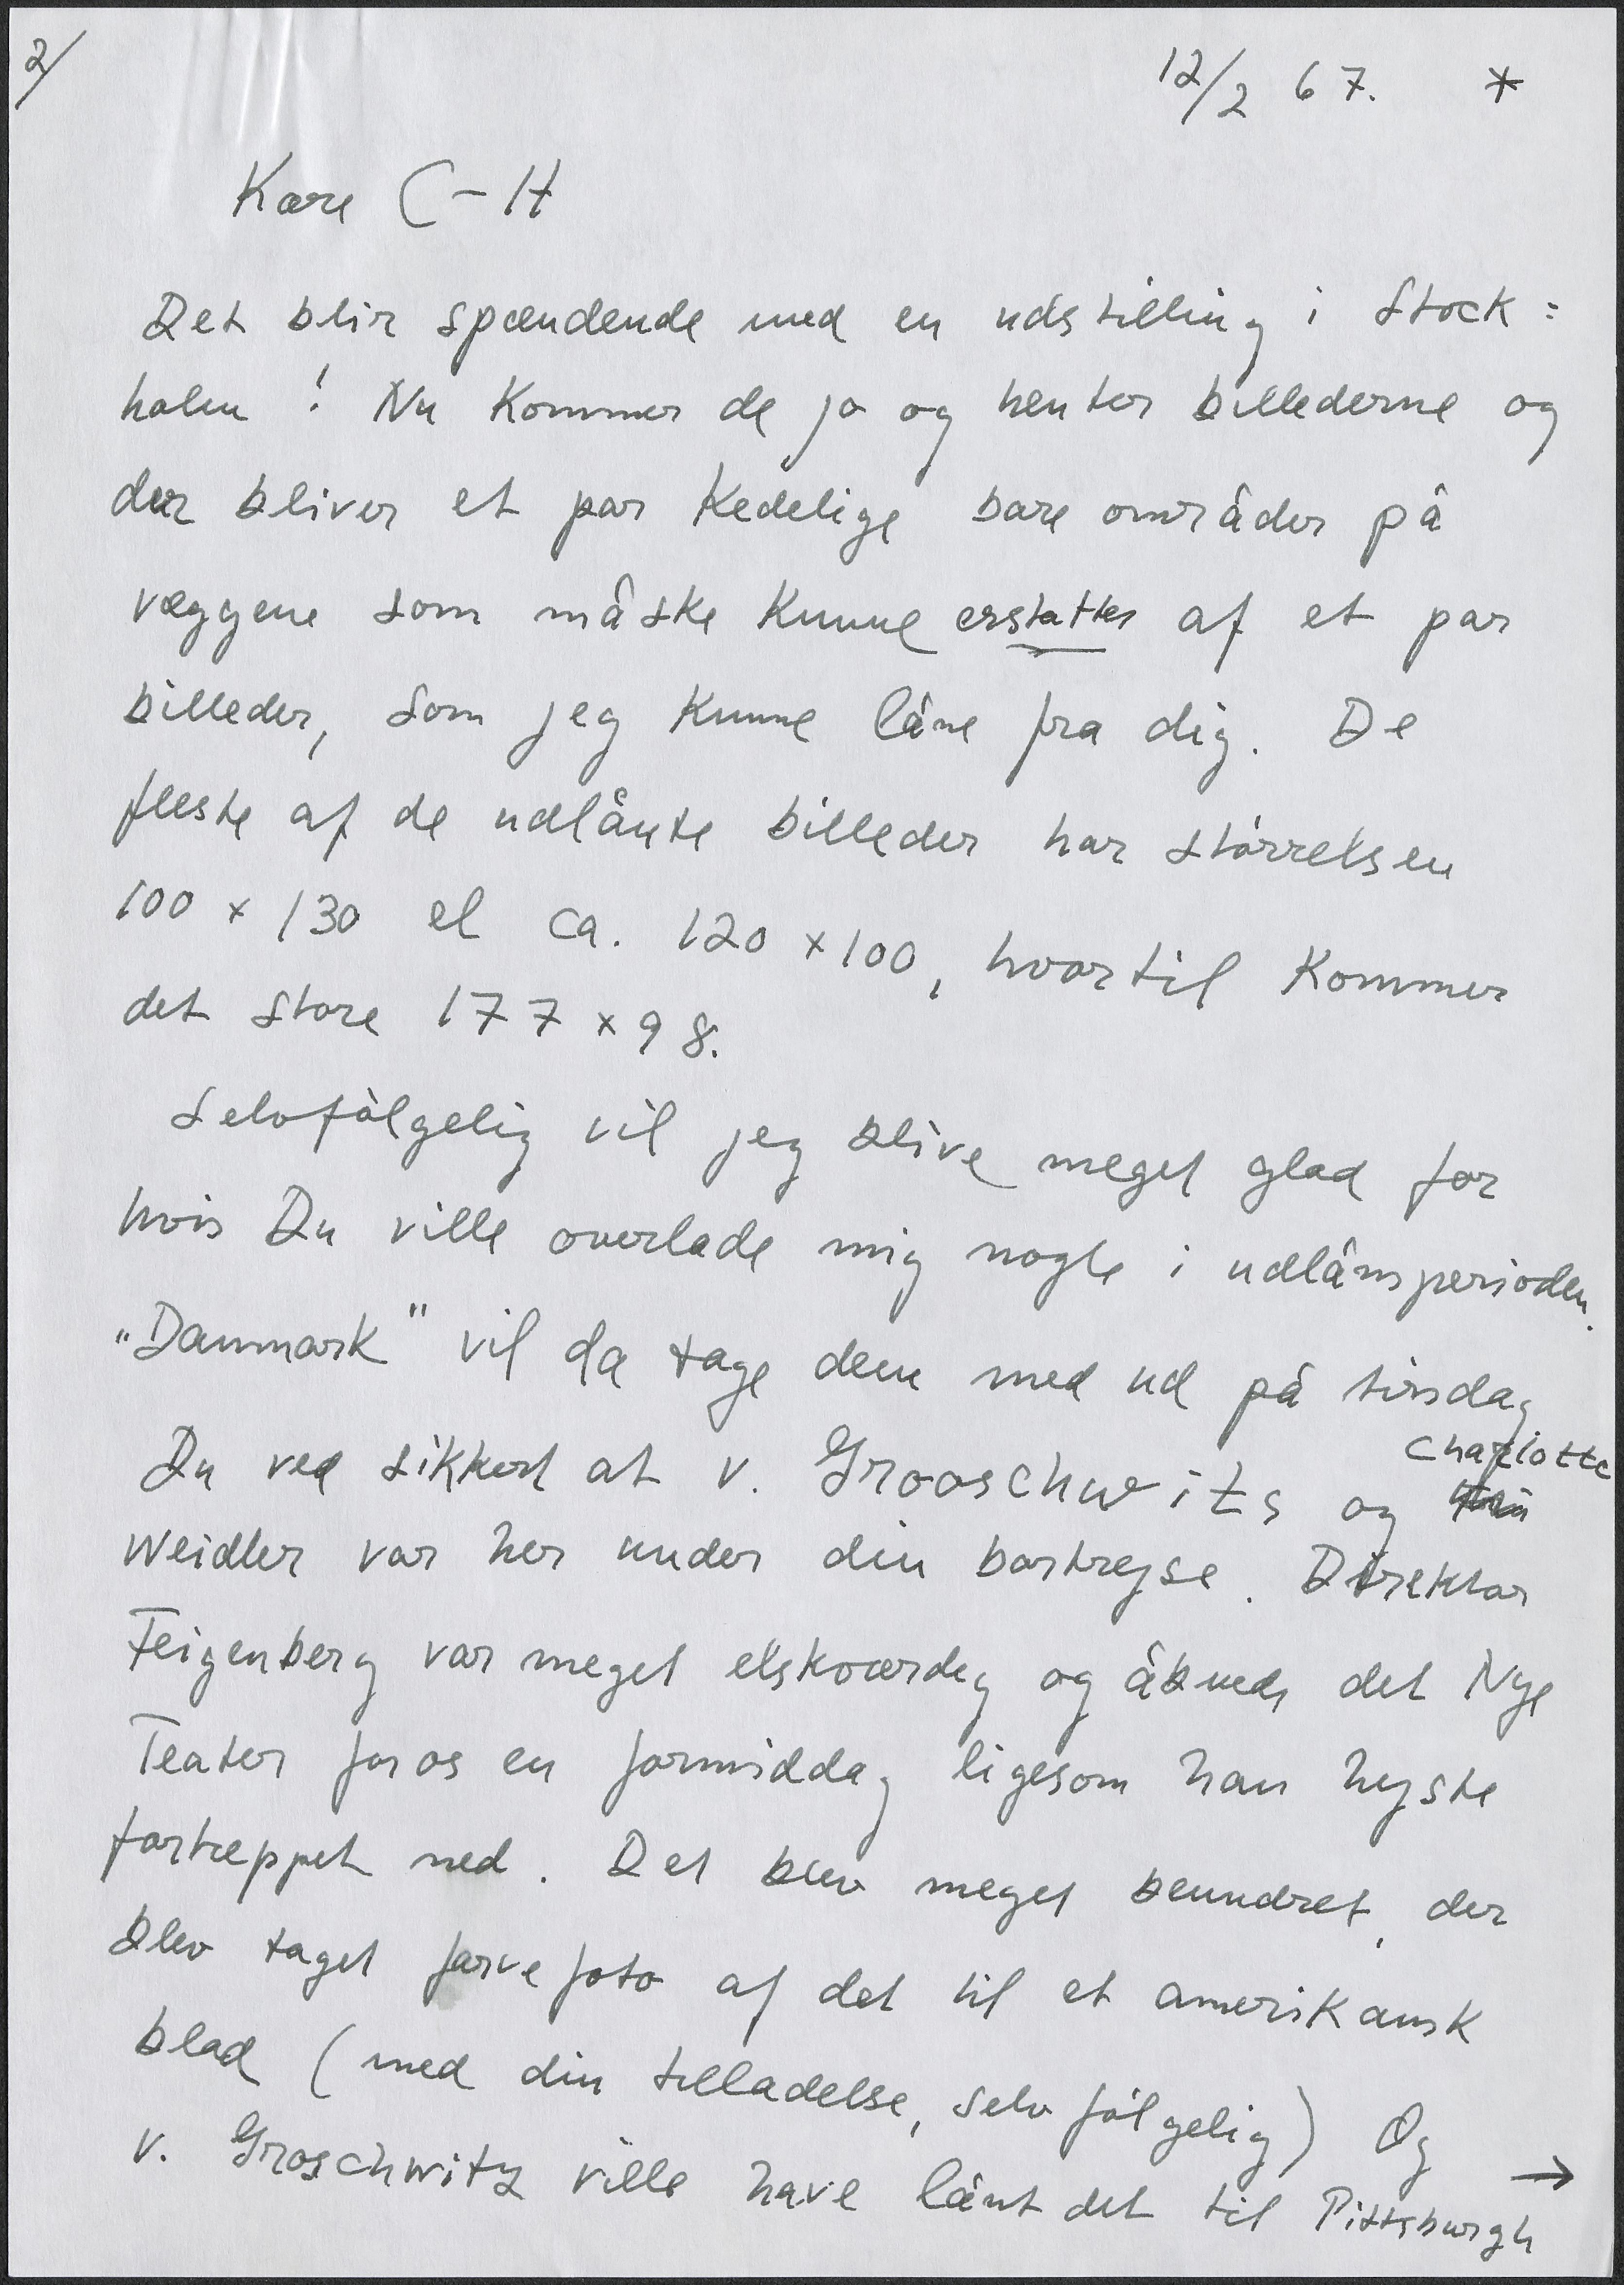 2/
12/2 67. *
Kære C-H
Det blir spændende med en udstilling i Stock=
holm! Nu kommer de jo og henter billederne og
der bliver et par kedelige bare områder på
væggene som måske kunne erstattes af et par
billeder, som jeg kunne låne fra dig. De
fleste af de udlånte billeder har størrelsen
100 x 130 el ca. 120 x 100, hvortil kommer
det store 177 x 98.
Selvfølgelig vil jeg blive meget glad for
hvis Du ville overlade mig nogle i udlånsperioden.
"Danmark" vil da tage dem med ud på tirsdag
Du ved sikkert at v. Grooschwits og Charlotte
Weidler var her under din bortrejse. Direktør
Feigenberg var meget elskværdig og åbnede det Nye
Teater for os en formiddag ligesom han hejste
fortæppet ned. Det blev meget beundret, der
blev taget farvefoto af det til et amerikansk
blad (med din tilladelse, selvfølgelig) Og
v. Groschwitz ville have lånt det til Pittsburgh
→